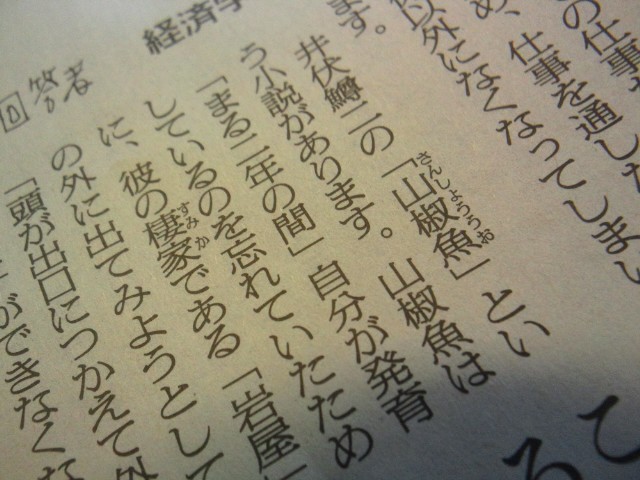 の仕事
め、仕事を通した
以外になくなってしまい
ます。
井伏鱒二の「山椒魚」とい
さんしょううお
う小説があります。山椒魚は
「まる二年の間」自分が発育
しているのを忘れていたため
に、彼の棲家である「岩屋」
すみか
の外に出てみようとして
「頭が出口につかえて外
ができなくな
経済学
回答者